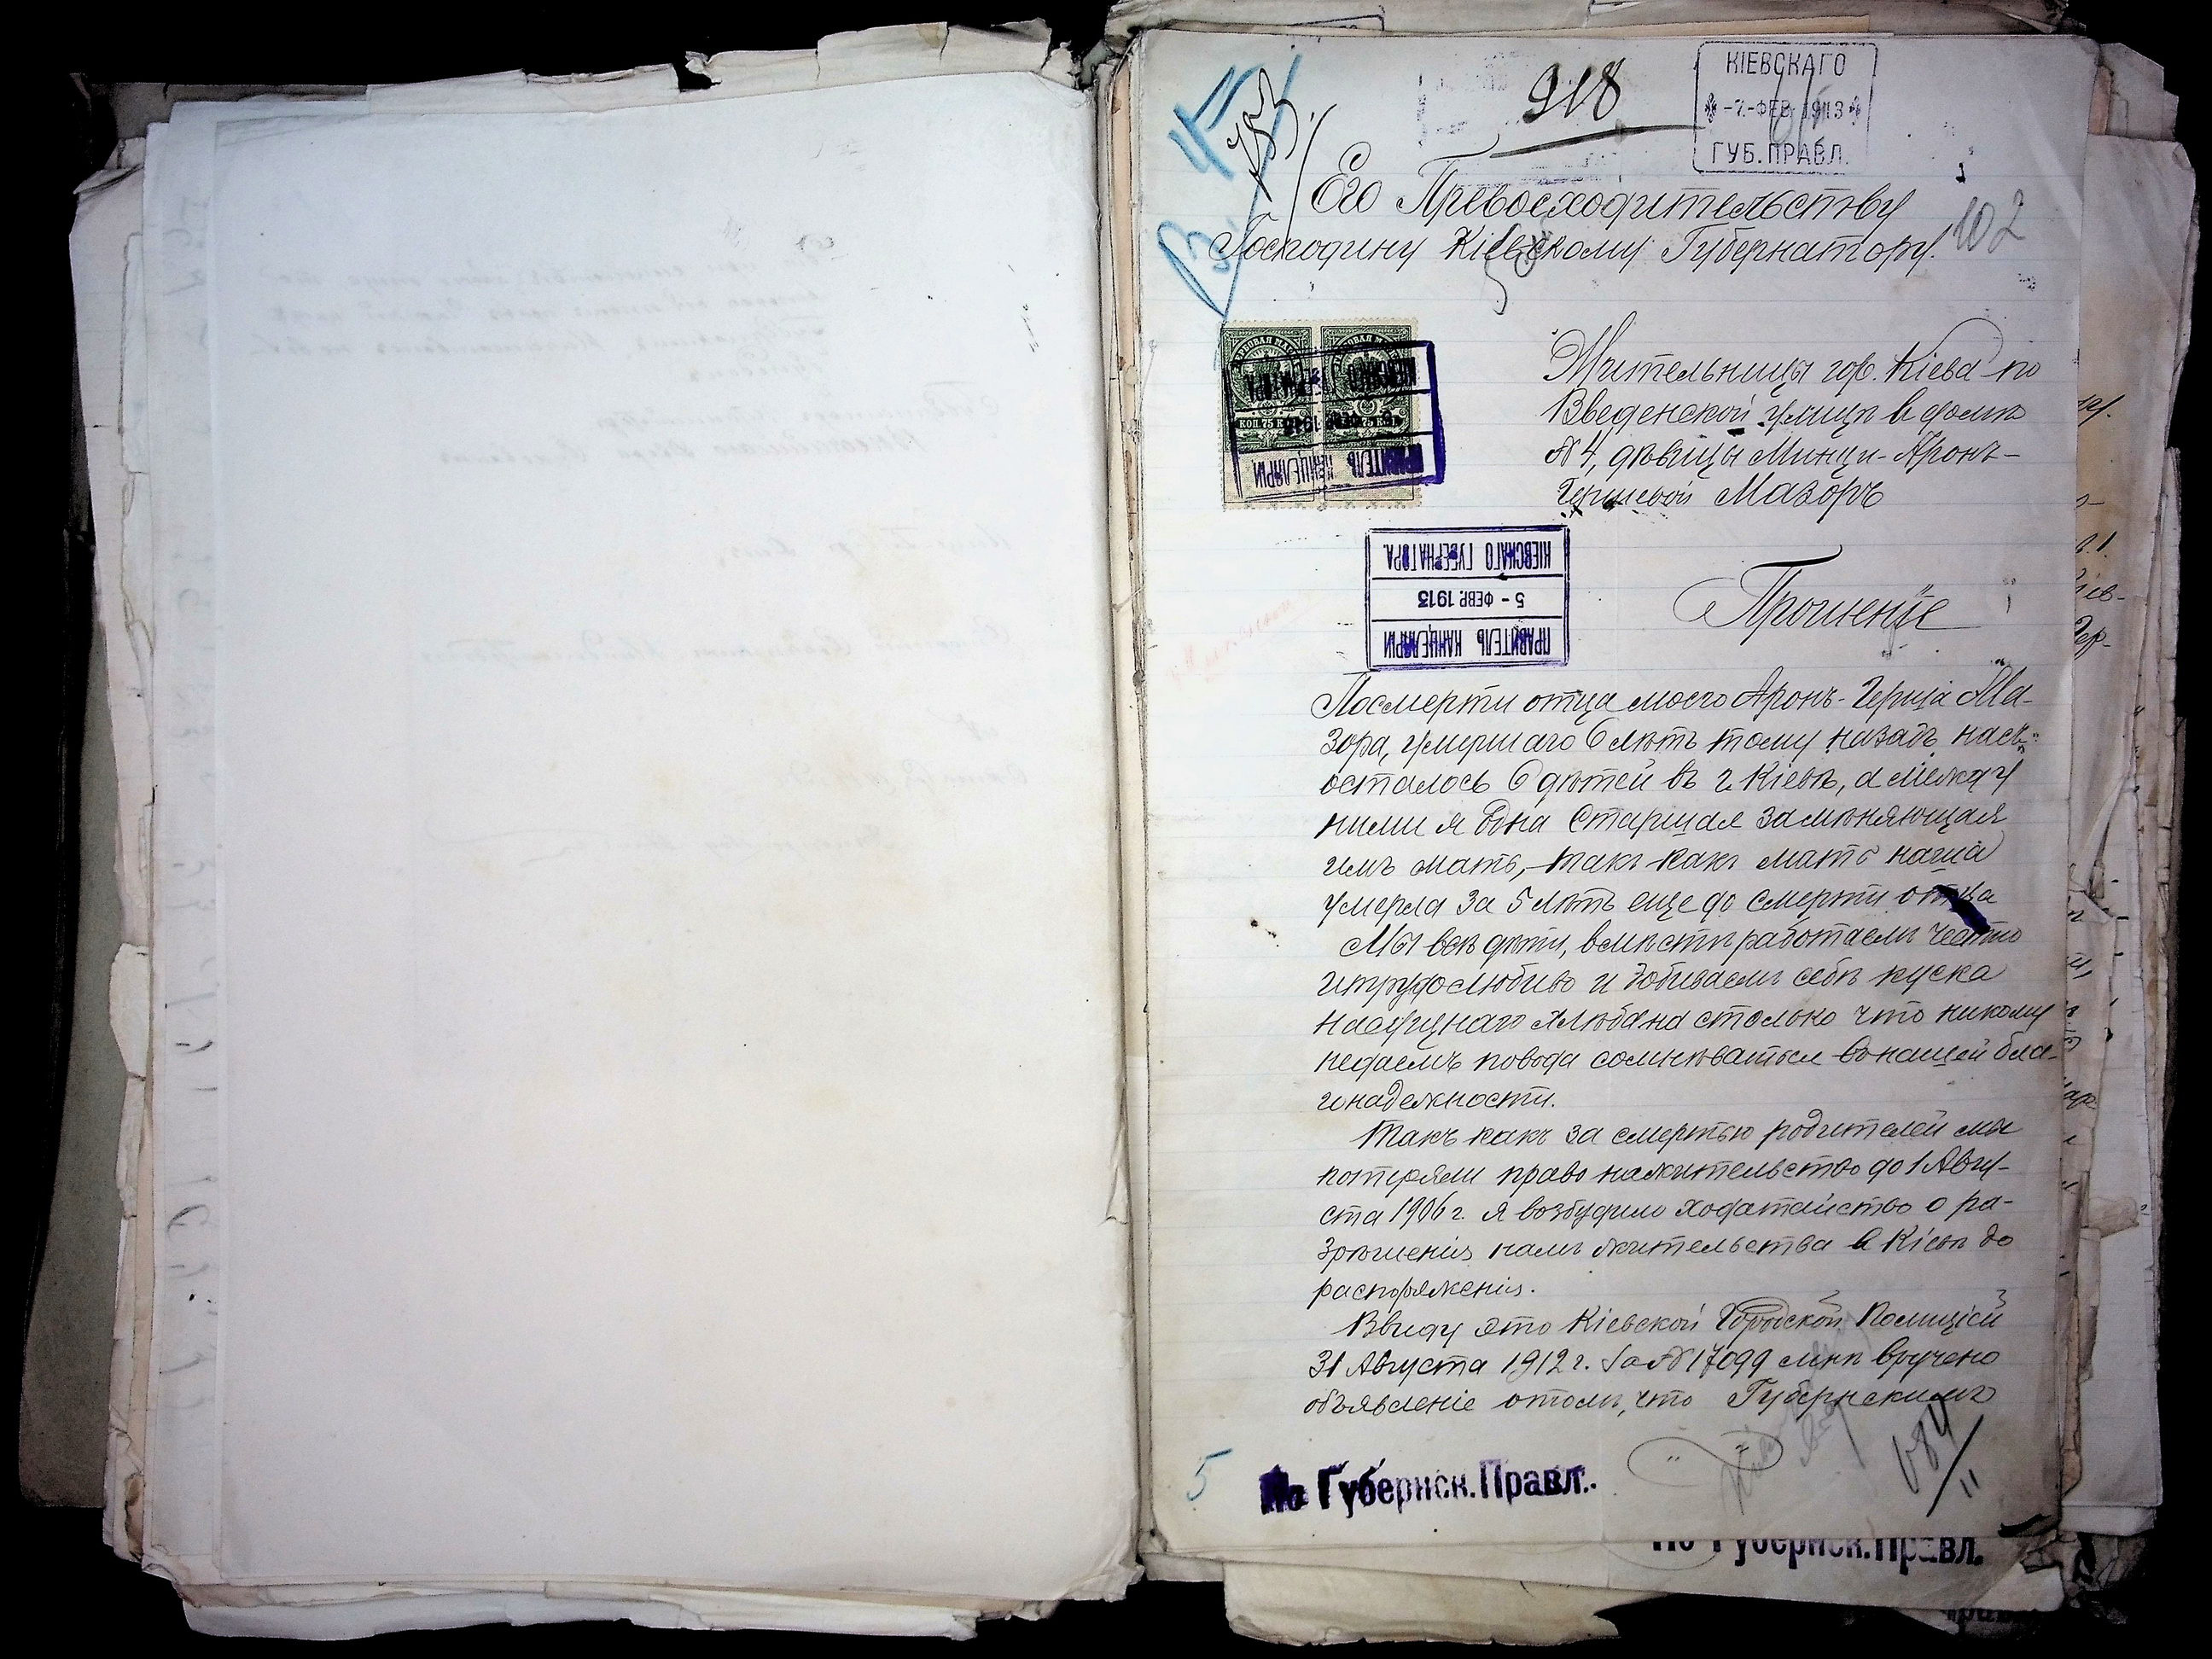 918
КІЕВСКАГО
-7.-ФЕВ.1913
ГУБ.ПРАВЛ.
Его Превосходительству
Господину Кіевскому Губернатору.
102
Жительницы гор. Кіева по
Введенской улицѣ в домѣ
№ 4, дѣвицы Минци-Аронъ-
Гершевой Мазоръ
КОП 75 К
ПРАВИТЕЛЬ КАНЦЕЛЯРІИ
КІЕВСКАГО ГУБЕРНАТОРА
ПРАВИТЕЛЬ КАНЦЕЛЯРІИ
5 - ФЕВР. 1913
КІЕВСКАГО ГУБЕРНАТОРА.
Прошеніе
Посмерти отца моего Аронъ-Герша Ма-
зора, умершаго 6 лѣтъ тому назадъ насъ
осталось 6 дѣтей въ г. Кіевѣ, а между
ними я одна Старшая замѣняющая
имъ мать, - такъ какъ мать наша
умерла за 5 лѣтъ еще до смерти отца
Мы всѣ дѣти, вмѣстѣ работаемъ честно
итрудолюбиво и добиваемъ себѣ куска
насущнаго хлѣба на столько что никому
недаемъ повода сомнѣваться въ нашей бла-
гонадежности.
Такъ какъ за смертью родителей мы
потеряли право нажительство до 1 Авгу-
ста 1906 г. я возбудила ходатайство о ра-
зрѣшенія намъ жительства в Кіевѣ до
распоряженія.
Ввиду этого Кіевской Городской Полиціей
31 Августа 1912 г. за № 17099 мнѣ вручено
объявленіе отомъ, что Губернскимъ
5
По Губернск.Правл.
684/11
По Губернск.Правл.